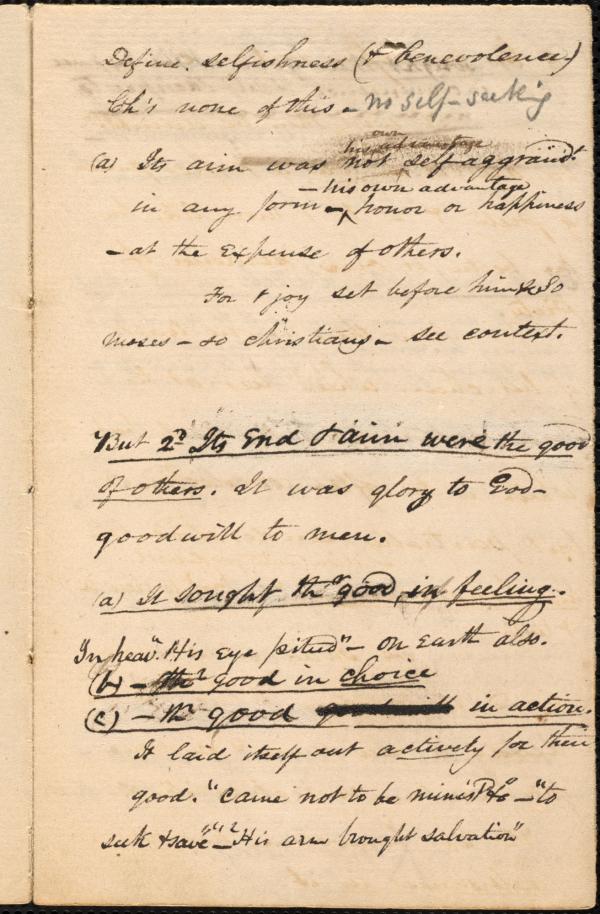 Define selfishness (& benevolence)
Ch's none of this – no self-seeking
own
his advantage
(a) Its aim was not self aggrand.t
– his own advantage
in any form – ^ honor or happiness
– at the expense of others.
For & joy set before him & So
Moses – so Christians – see context.
But 2d Its End & aim were the good
of others. It was glory to God –
goodwill to men.
(a) It sought thr good, in feeling.
In heav. "His Eye pitied" – on Earth also.
(b) – thr good in choice
(c) – thr good in action.
It laid itself out actively for their
good. "came not to be minist'd to – "to
seek & save" – "His arm brought salvation"